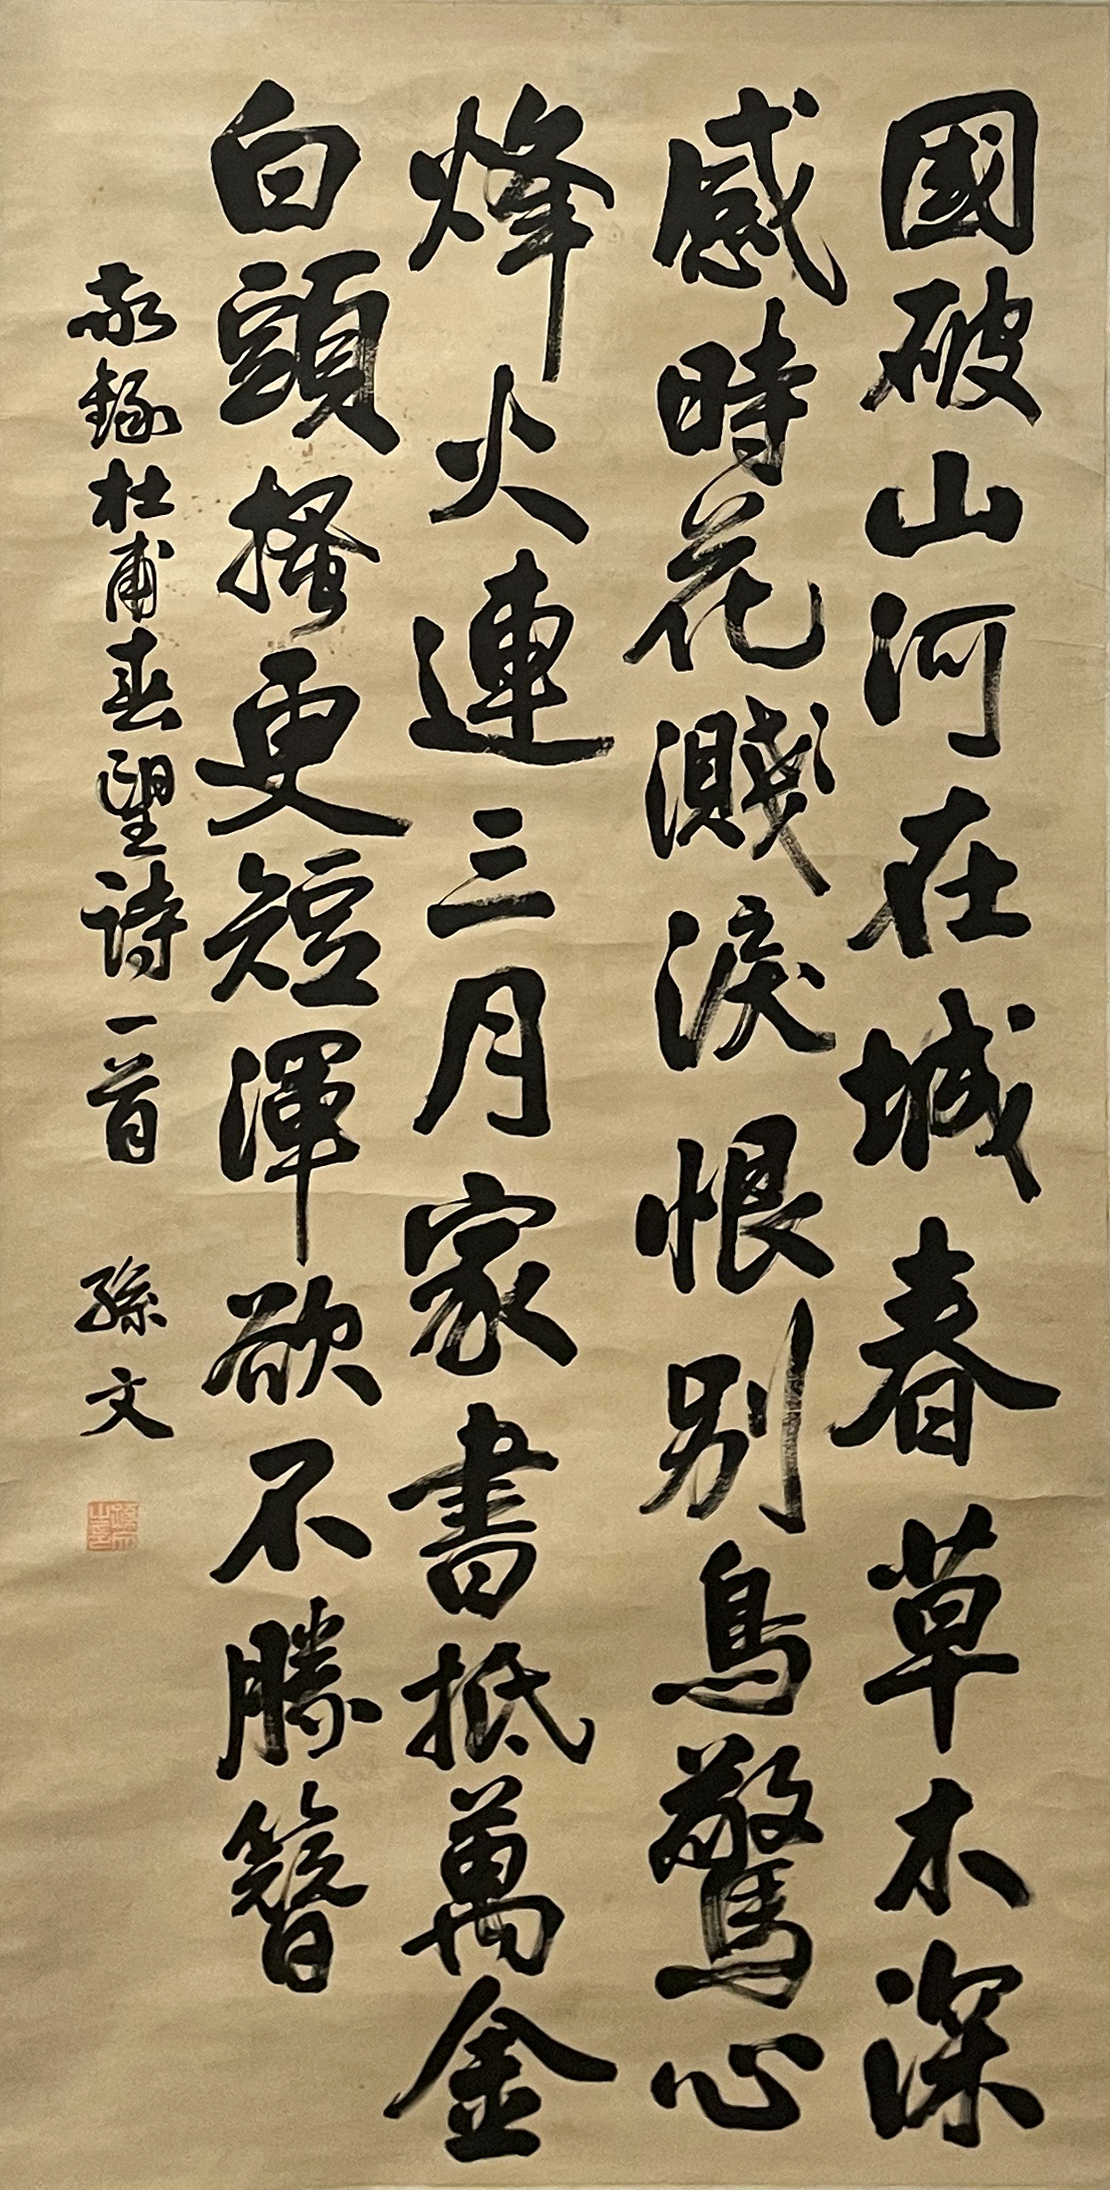 國破山河在城春草木深
感時花濺淚恨別鳥驚心
烽火連三月家書抵萬金
白頭搔更短渾欲不勝簪
敬錄杜甫春望詩一首 孫文